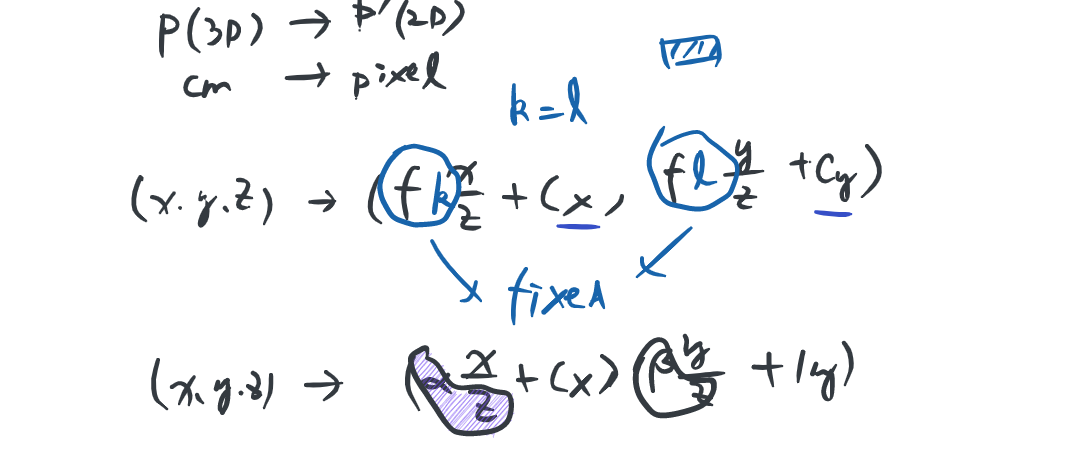 P(3D) → P'(2D)
cm → pixel
k = l
(x.y.z) → (fk x/z + Cx, fl y/z + Cy)
fixed
(x.y.z) → (α x/z + Cx) (β y/z + Cy)